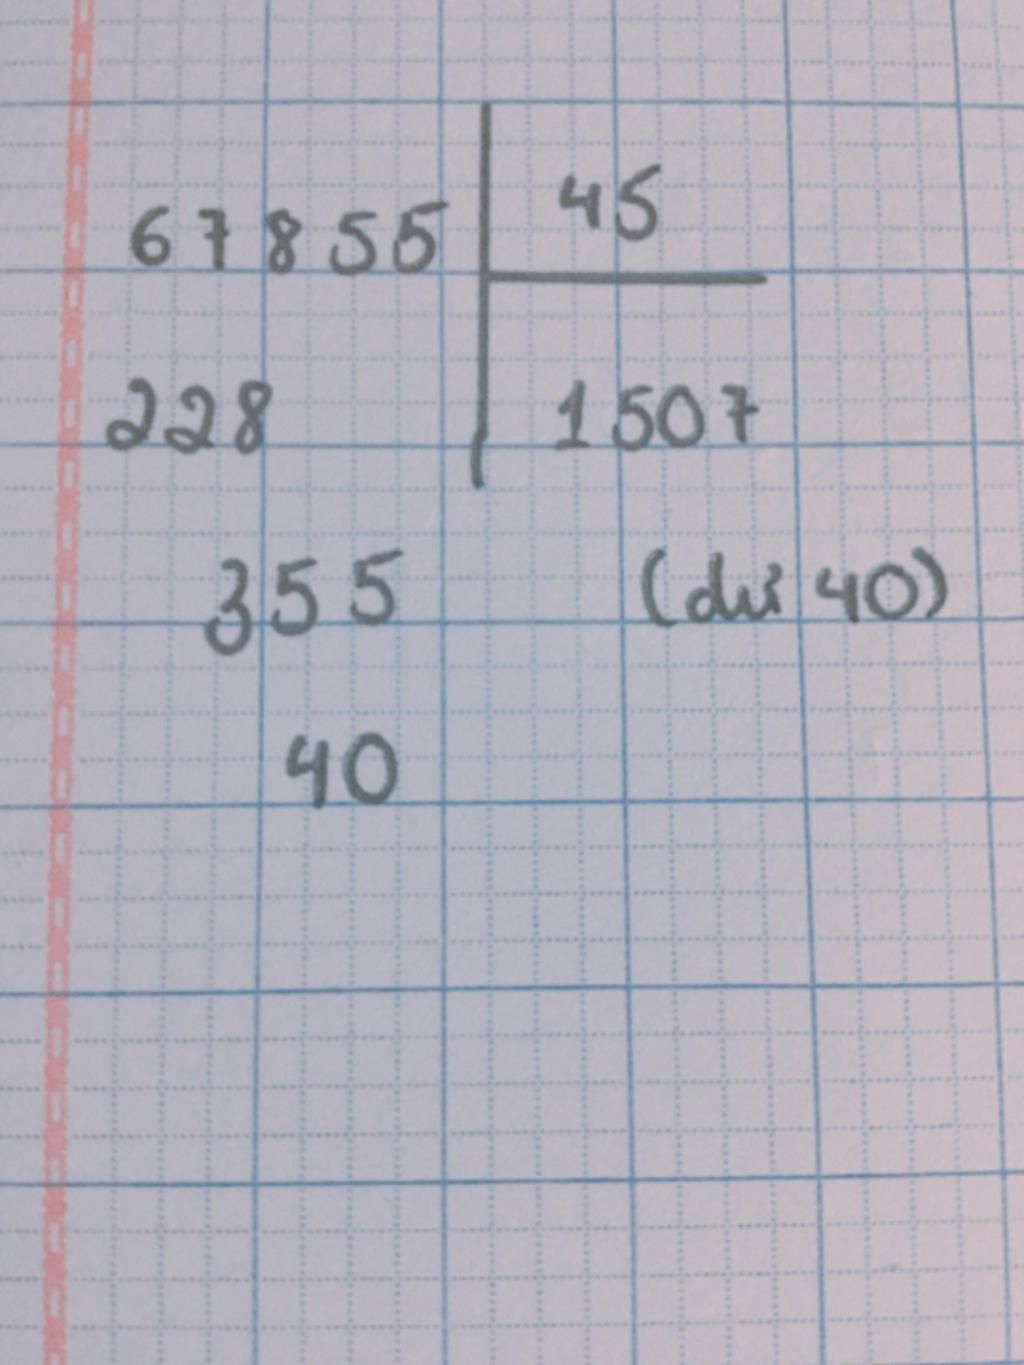 67855 45
228 1507
355 (dư 40)
40